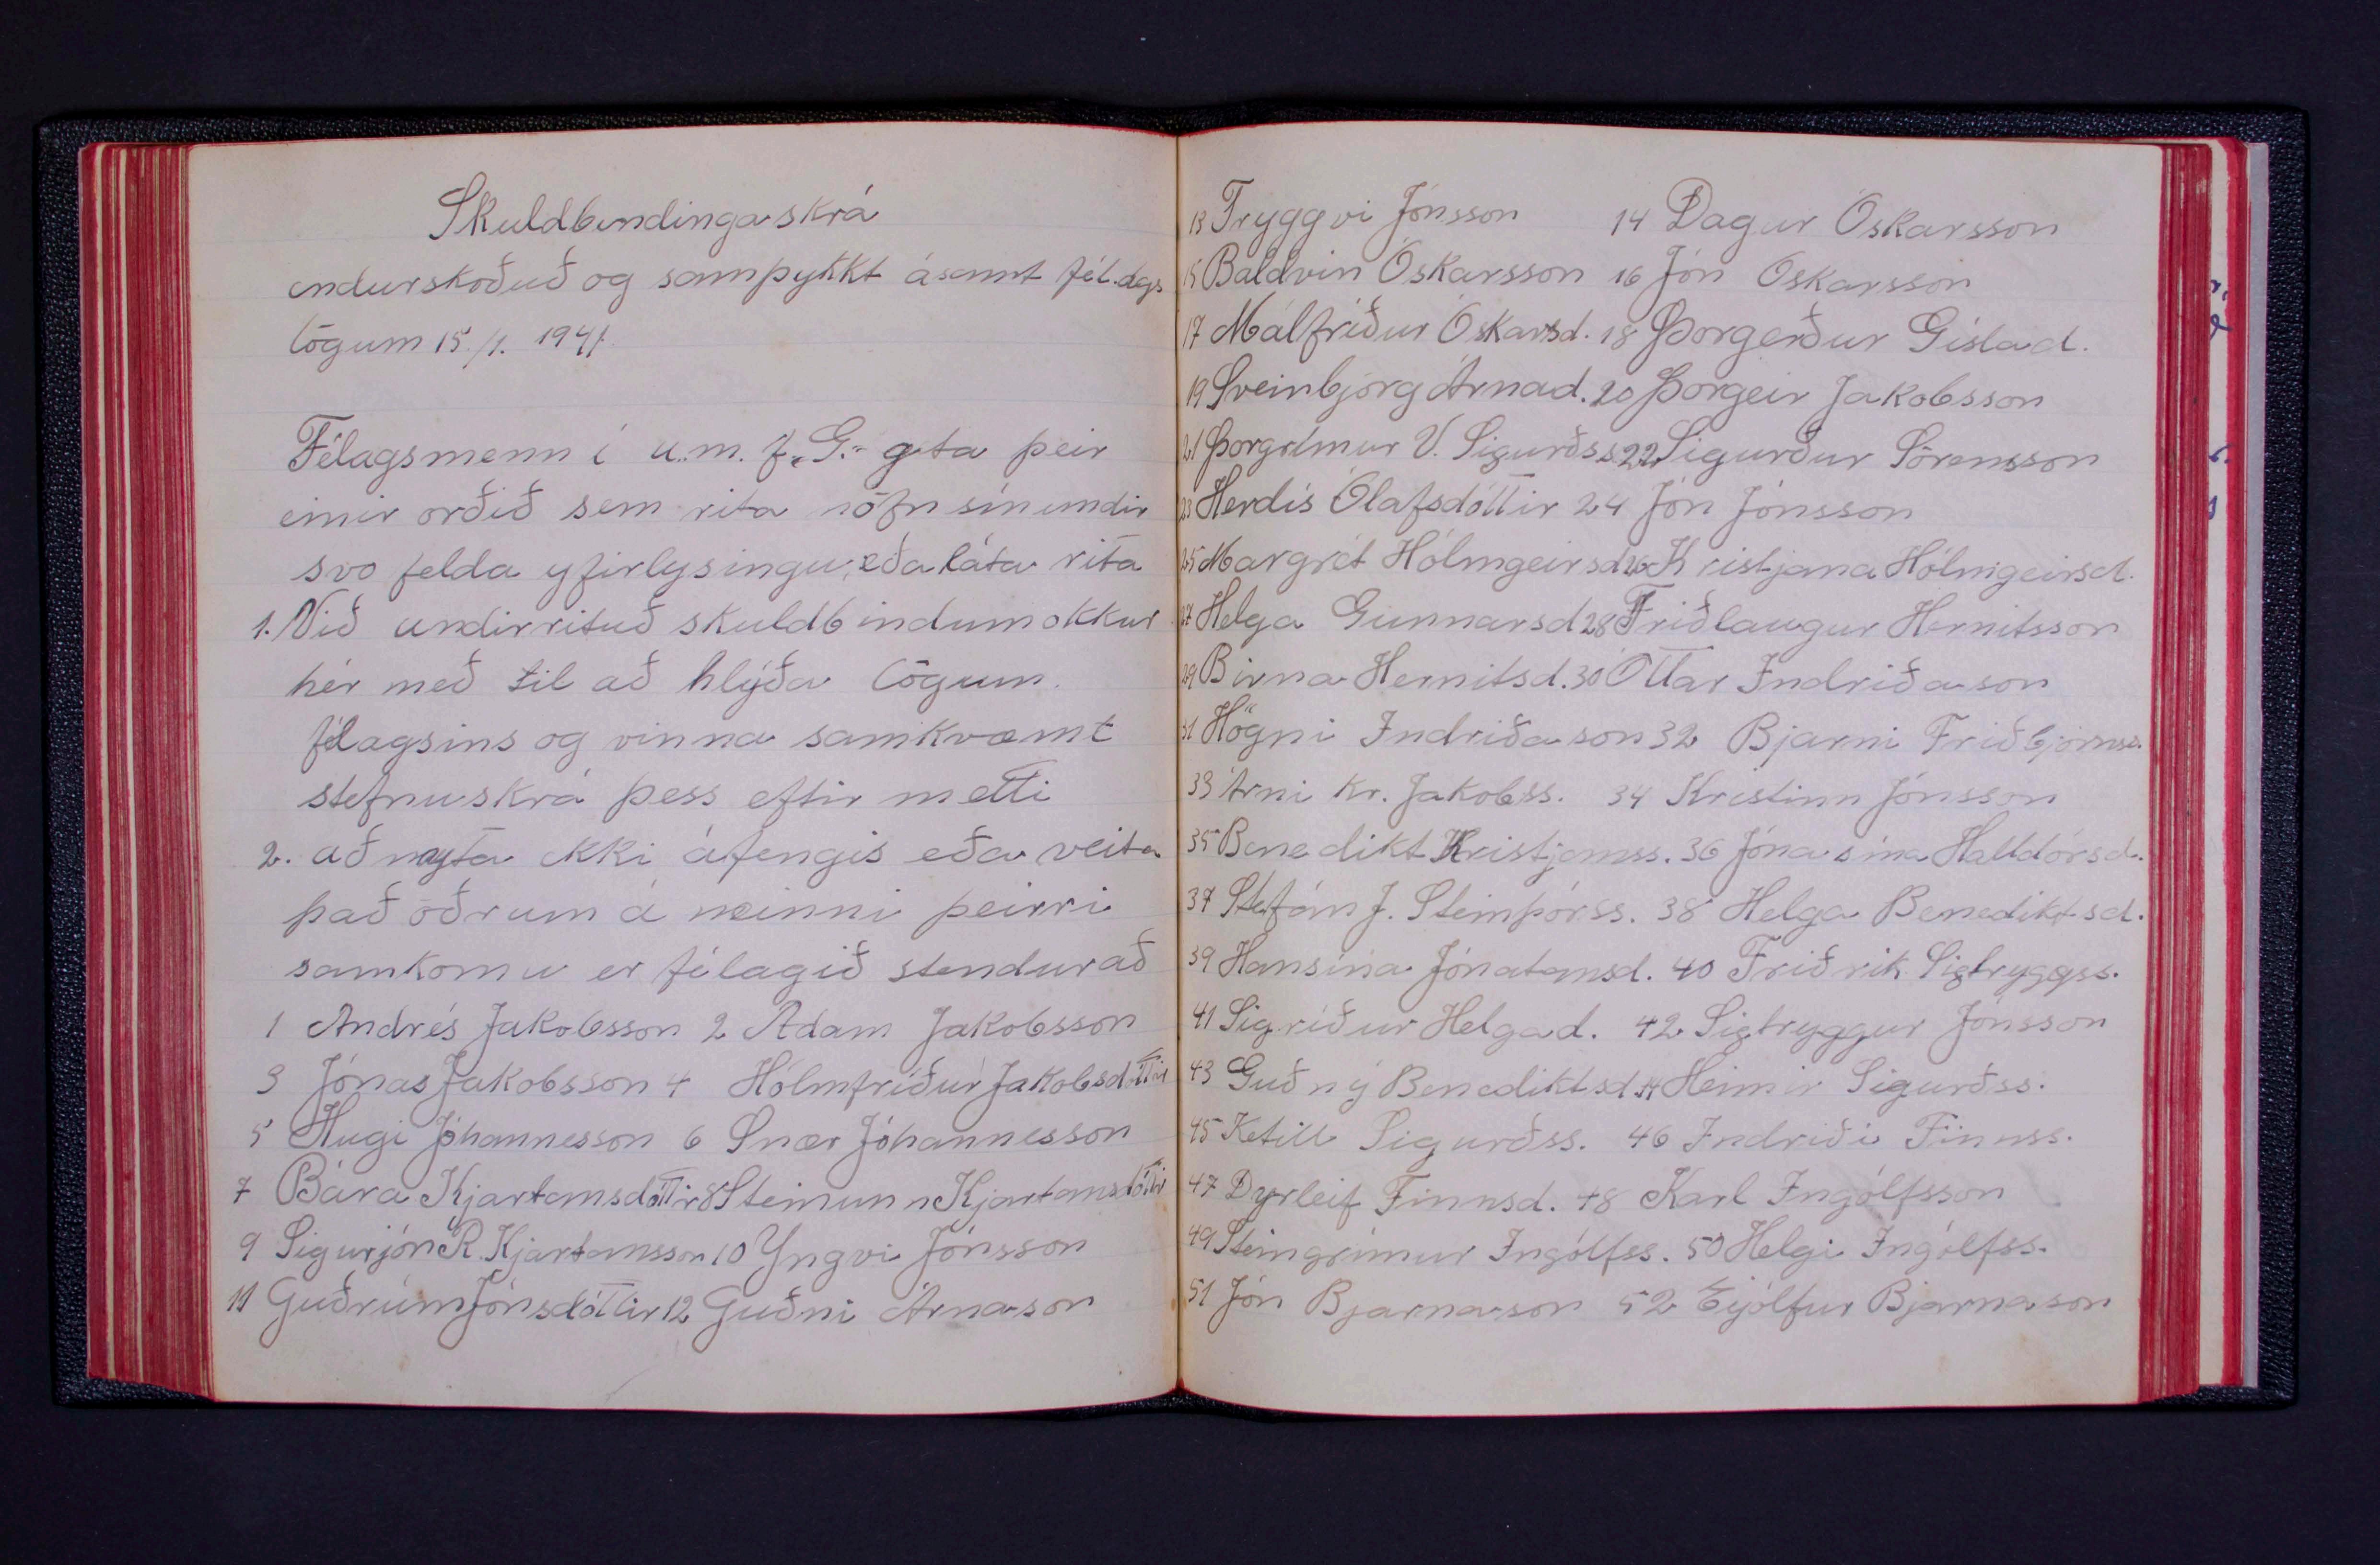 Skuldbindingaskrá
endurskoðuð og samþykkt ásamt fél.lags
lögum 15./1. 1941.
Félagsmenn í u.m.f. "G." geta þeir
einir orðið sem rita nöfn sín undir
svo felda yfirlysingu, eða láta rita
1. Við undirrituð skuldbindum okkur
hér með til að hlýða lögum
félagsins og vinna samkvæmt
stefnuskrá þess eftir metti
2. að neyta ekki áfengis eða veita
það öðrum á neinni þeirri
samkomu er félagið stendur að
1 Andrés Jakobsson 2 Adam Jakobsson
3 Jónas Jakobsson 4 Hólmfríður Jakobsdóttir
5 Hugi Jóhannesson 6 Snær Jóhannesson
7 Bára Kjartansdóttir 8 Steinunn Kjartansdóttir
9 Sigurjón R. Kjartansson 10 Yngvi Jónsson
11 Guðrún Jónsdóttir 12 Guðni Árnason
13 Tryggvi Jónsson 14 Dagur Óskarsson
15 Baldvin Óskarsson 16 Jón Óskarsson
17 Málfríður Óskarsd. 18 Þorgerður Gíslad.
19 Sveinbjörg Árnad. 20 Þorgeir Jakobsson
21 Þorgrímur V. Sigurðss 22 Sigurður Sörensson
23 Herdís Ólafsdóttir 24 Jón Jónsson
25 Margrét Hólmgeirsd 26 Kristjana Hólmgeirsd.
27 Helga Gunnarsd 28 Friðlaugur Hernitsson
29 Birna Hernitsd. 30 Óttar Indriðason
31 Högni Indriðason 32 Bjarni Friðbjörnss.
33 Árni Kr. Jakobss. 34 Kristinn Jónsson
35 Benedikt Kristjanss. 36 Jónasína Halldórsd.
37 Stefán J. Steinþórss. 38 Helga Benediktsd.
39 Hansína Jónatansd. 40 Friðrik Sigtryggss.
41 Sigríður Helgad. 42 Sigtryggur Jónsson
43 Guðný Benediktsd 44 Heimir Sigurðss.
45 Ketill Sigurðss. 46 Indriði Finnss.
47 Dyrleif Finnsd. 48 Karl Ingólfsson
49 Steingrímur Ingólfss. 50 Helgi Ingólfss.
51 Jón Bjarnason 52 Eyjólfur Bjarnason